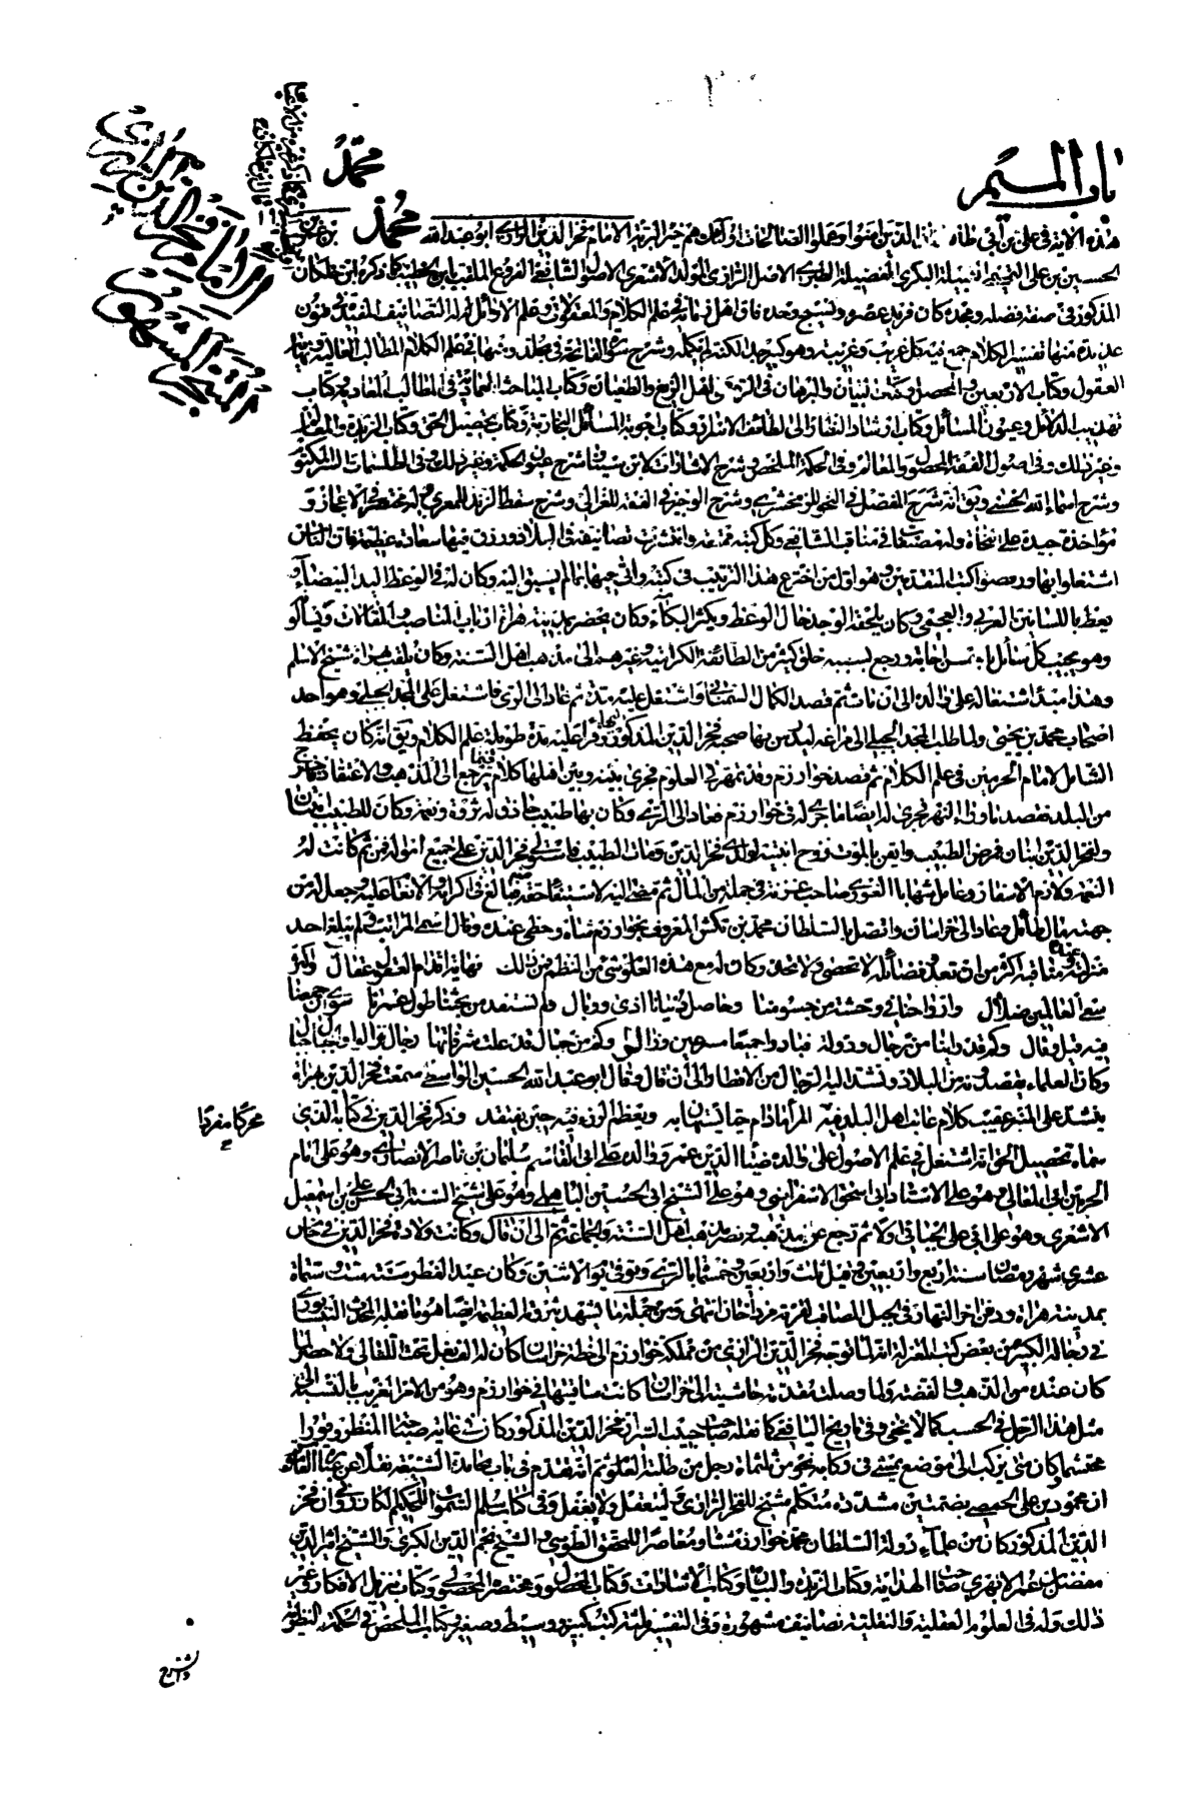 باب الميم
محمد
هذه الآية في علي بن أبي طالب الذين آمنوا وعملوا الصالحات أولئك هم خير البرية الإمام فخر الدين الرازي أبو عبد الله محمد بن عمر بن
الحسين بن علي التيمي القبيلة البكري الفضيلة الطبري الأصل الرازي المولد الأشعري الأصول الشافعي الفروع الملقب بابن الخطيب كما ذكره ابن خلكان
المذكور في صفة فضله ومجده كان فريد عصره ونسيج وحده فاق أهل زمانه في علم الكلام والمعقولات وعلم الأوائل له التصانيف المفيدة في فنون
عديدة منها تفسير الكلام جمع فيه كل غريب وغريبة وهو كبير جدا لكنه لم يكمله وشرح سورة الفاتحة في مجلد ومنها في علم الكلام المطالب العالية ونهاية
العقول وكتاب الأربعين والمحصل وكتاب البيان والبرهان في الرد على أهل الزيغ والطغيان وكتاب المباحث العمادية في المطالب المعادية وكتاب
تهذيب الدلائل وعيون المسائل وكتاب إرشاد النظار إلى لطائف الأسرار وكتاب أجوبة المسائل البخارية وكتاب تحصيل الحق وكتاب الزبدة والمعالم
وغير ذلك وفي أصول الفقه المحصول والمعالم وفي الحكمة الملخص وشرح الإشارات لابن سينا وشرح عيون الحكمة وغير ذلك وفي الطلسمات السر المكتوم
وشرح أسماء الله الحسنى ويق انه شرح المفصل في النحو للزمخشري وشرح الوجيز في الفقه للغزالي وشرح سقط الزند للمعري وله مختصر في الإعجاز و
مؤاخذة جيدة على النحاة وله مصنف في مناقب الشافعي وكل كتبه ممتعة وانتشرت تصانيفه في البلاد ورزق فيها سعادة عظيمة فان الناس
اشتغلوا بها ورفضوا كتب المتقدمين وهو أول من اخترع هذا الترتيب في كتبه وأتى فيها بما لم يسبق إليه وكان له في الوعظ اليد البيضاء و
يعظ باللسانين العربي والعجمي وكان يلحقه الوجد حال الوعظ ويكثر البكاء وكان يحضر بمدينة هراة أرباب المناصب والمقالات ويسألونه
وهو يجيب كل سائل بأحسن إجابة ورجع بسببه خلق كثير من الطائفة الكرامية وغيرهم إلى مذهب أهل السنة وكان يلقب بهراة شيخ الإسلام
وهذا مبدأ اشتغاله على والده إلى أن مات ثم قصد الكمال السمناني واشتغل عليه مدة ثم عاد إلى الري فاشتغل على المجد الجيلي وهو أحد
أصحاب محمد بن يحيى ولما طلب المجد الجيلي إلى مراغة ليدرس بها صحبه فخر الدين المذكور إليها وقرأ عليه مدة طويلة علم الكلام ويق انه كان يحفظ
الشامل لإمام الحرمين في علم الكلام ثم قصد خوارزم وقد تمهر في العلوم فجرى بينه وبين أهلها كلام فيما يرجع إلى المذهب والاعتقاد فأخرج
من البلد فقصد ما وراء النهر فجرى له أيضا ما جرى له في خوارزم فعاد إلى الري وكان بها طبيب حاذق له ثروة ونعمة وكان للطبيب ابنتان
ولفخر الدين ابنان فمرض الطبيب وأيقن بالموت فزوج ابنتيه لولدي فخر الدين ومات الطبيب فاستولى فخر الدين على جميع أمواله فمن ثم كانت له
النعمة ولازم الأسفار وعامل شهاب الدين الغوري صاحب غزنة في جملة من المال ثم مضى إليه لاستيفاء حقه منه فبالغ في إكرامه والإنعام عليه وحصل له من
جهته مال طائل وعاد إلى خراسان واتصل بالسلطان محمد بن تكش المعروف بخوارزم شاه وحظي عنده ونال أسمى المراتب ولم يبلغ أحد
منزلته عنده ومناقبه أكثر من أن تعد وفضائله لا تحصى ولا تحد وكان له مع هذه العلوم شيء من النظم فمن ذلك نهاية إقدام العقول عقال وأكثر
سعي العالمين ضلال وأرواحنا في وحشة من جسومنا وحاصل دنيانا أذى ووبال ولم نستفد من بحثنا طول عمرنا سوى أن جمعنا
فيه قيل وقال وكم قد رأينا من رجال ودولة فبادوا جميعا مسرعين وزالوا وكم من جبال قد علت شرفاتها رجال فزالوا والجبال جبال
وكان العلماء يقصدونه من البلاد وتشد إليه الرحال من الأقطار إلى أن قال وقال أبو عبد الله الحسين الواسطي سمعت فخر الدين بهراة
ينشد على المنبر عقيب كلام عاتب أهل البلد فيه المرء ما دام حيا يستهان به ويعظم الرزء فيه حين يفتقد وذكر فخر الدين في كتابه الذي
سماه تحصيل الحق انه اشتغل في علم الأصول على والده ضياء الدين عمر ووالده على أبي القاسم سليمان بن ناصر الأنصاري وهو على إمام
الحرمين أبي المعالي وهو على الأستاذ أبي إسحق الإسفرايني وهو على الشيخ أبي الحسين الباهلي وهو على شيخ السنة أبي الحسن علي بن إسمعيل
الأشعري وهو على أبي علي الجبائي أولا ثم رجع عن مذهبه ونصر مذهب أهل السنة والجماعة إلى أن قال وكانت ولادة فخر الدين في خامس
عشري شهر رمضان سنة أربع وأربعين وقيل ثلث وأربعين وخمسمائة بالري وتوفي يوم الاثنين وكان عيد الفطر سنة ست وستمائة
بمدينة هراة ودفن آخر النهار في الجبل المصاقب لقرية مزداخان انتهى ومن جملة ما يشهد بثروته العظيمة أيضا هو ما نقله المحدث النيسابوري
في رجاله الكبير من بعض كتب المعتزلة انه لما توجه فخر الدين الرازي من مملكة خوارزم إلى خطة خراسان كان له ألف بغل تحت أثقالي ولا حصر لما
كان عنده من الذهب والفضة ولما وصلت مقدمة حاشيته إلى خراسان كانت ساقتها في خوارزم وهو من الأمر الغريب بالنسبة إلى
مثل هذا الرجل في الحسب كما لا يخفى وفي تاريخ اليافعي كما نقله صاحب حبيب السير ان فخر الدين المذكور كان في غاية صباحة المنظر وقورا
محتشما وكان متى يركب إلى موضع يمشي في ركابه نحو من ثلثمائة رجل من طلبة العلوم ثم انه تقدم في باب المحامدة الشيعة نقلا عن
ان محمود بن علي الحمصي بضمتين مشددة متكلم شيخ للفخر الرازي وفي كتاب سلم السموات للحكيم الكازروني ان فخر
الدين المذكور كان من علماء دولة السلطان محمد خوارزمشاه ومعاصرا للمحقق الطوسي والشيخ نجم الدين الكبرى والشيخ أثير الدين
مفضل بن عمر الأبهري صاحب الهداية وكتاب الزبدة والبيان وكتاب الإشارات وكتاب المحصول ومختصر المحصول وكتاب تنزيل الأفكار وغير
ذلك وله في العلوم العقلية والنقلية تصانيف مشهورة وفي التفسير ثلثة كتب كبير ووسيط وصغير وكتاب الملخص في الحكمة النظرية
الامام فخر الدين الرازي
محركا مفردا
وشرح